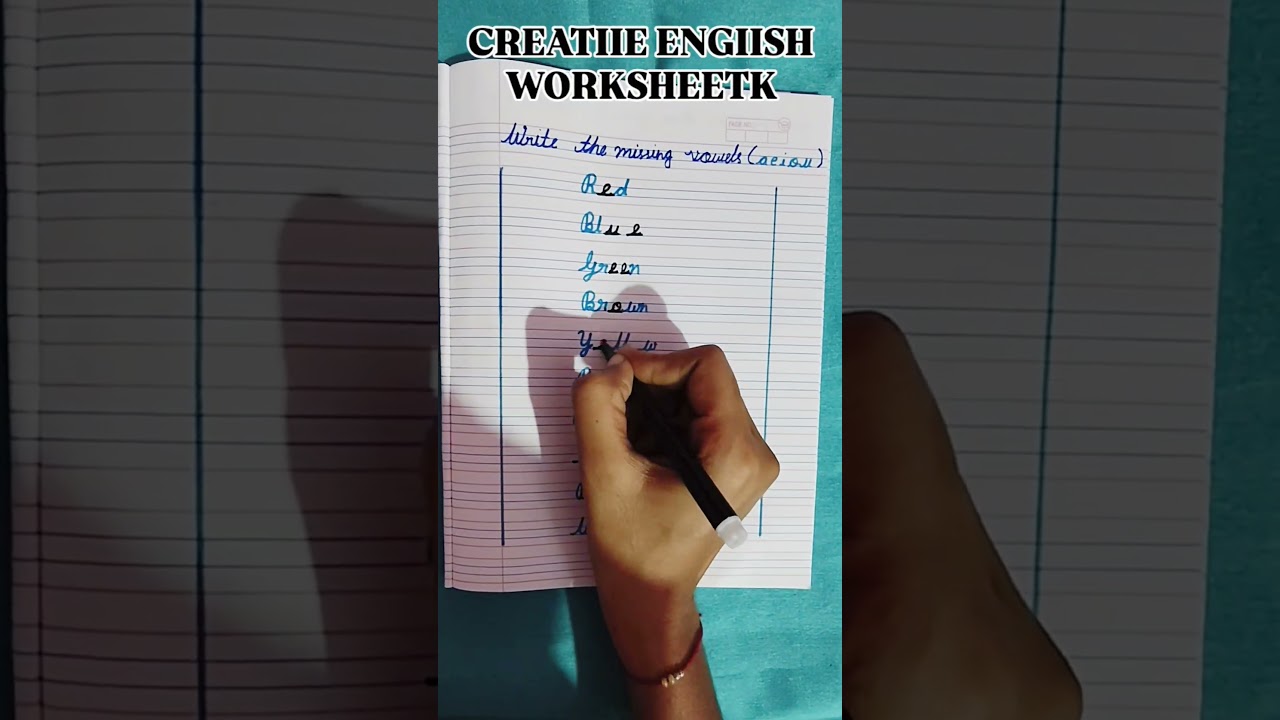 CREATIIE ENGIISH
WORKSHEETK
PAGE NO.
Write the missing vowels (a e i o u)
Red
Blue
Green
Brown